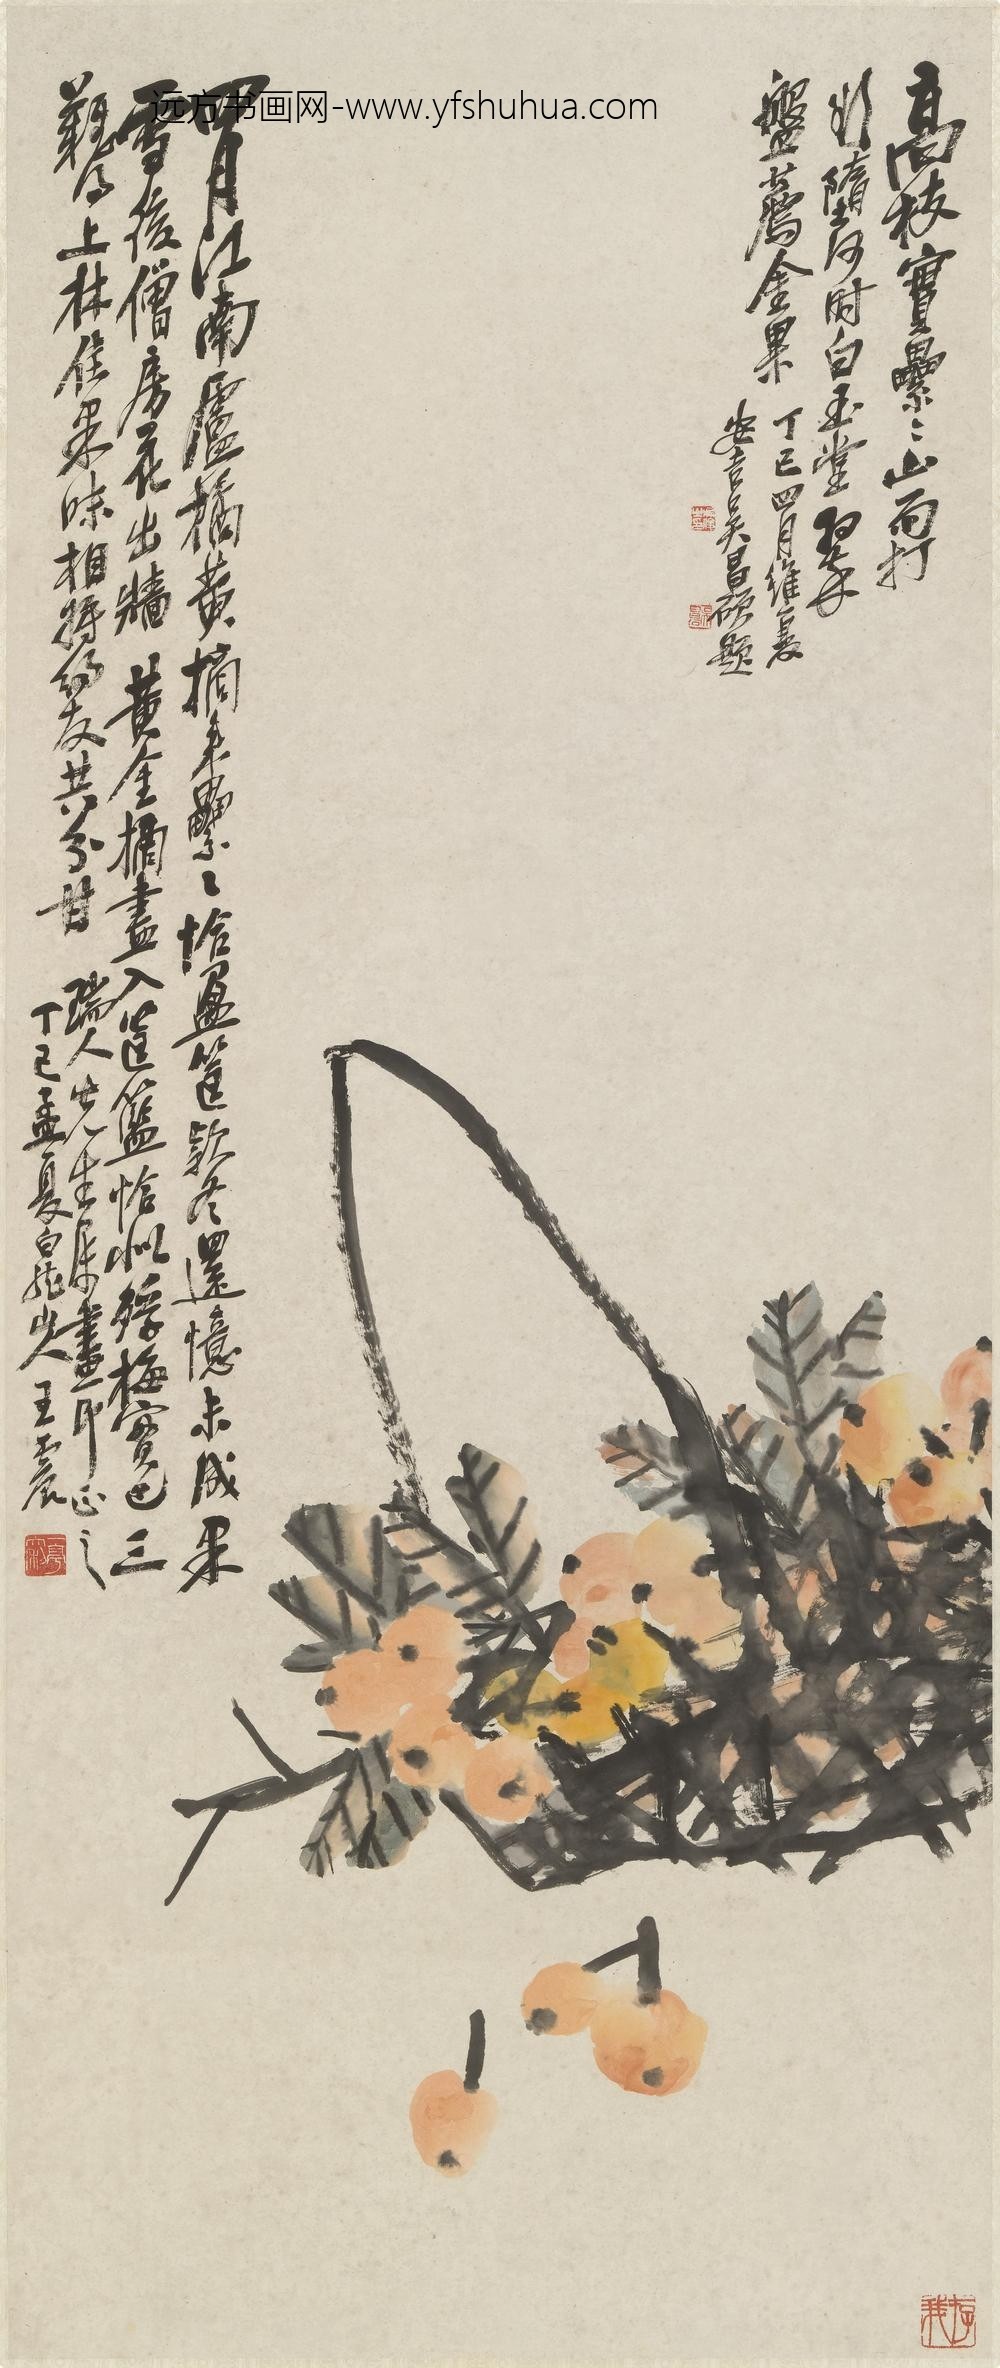 远方书画网-www.yfshuhua.com
高枝實纍纍山雨打
將墮何時白玉堂翠
盤薦金果
丁巳四月維夏
安吉吳昌碩題
四月江南盧橘黄摘来纍纍恰盈筐款冬還憶未成果
雪後僧房花出牆 黄金摘盡入筐籃恰似浮梅實已三
難得上林佳果味相招的友共分甘
瑞人先生属畫即正之
丁巳孟夏白龍山人王震